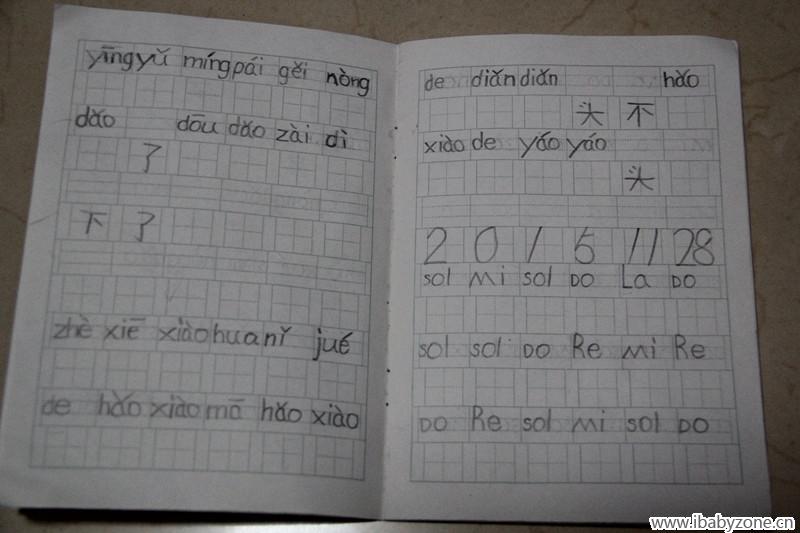 yīng yǔ míng pái gěi nòng
dǎo dōu dǎo zài dì
了
下 了
zhè xiē xiào hua nǐ jué
de hǎo xiào mā hǎo xiào
de diǎn diǎn hǎo
头 不
xiào de yáo yáo
头
2 0 1 5 11 28
sol Mi sol DO La DO
sol sol DO Re Mi Re
DO Re sol Mi sol DO
www.ibabyzone.cn